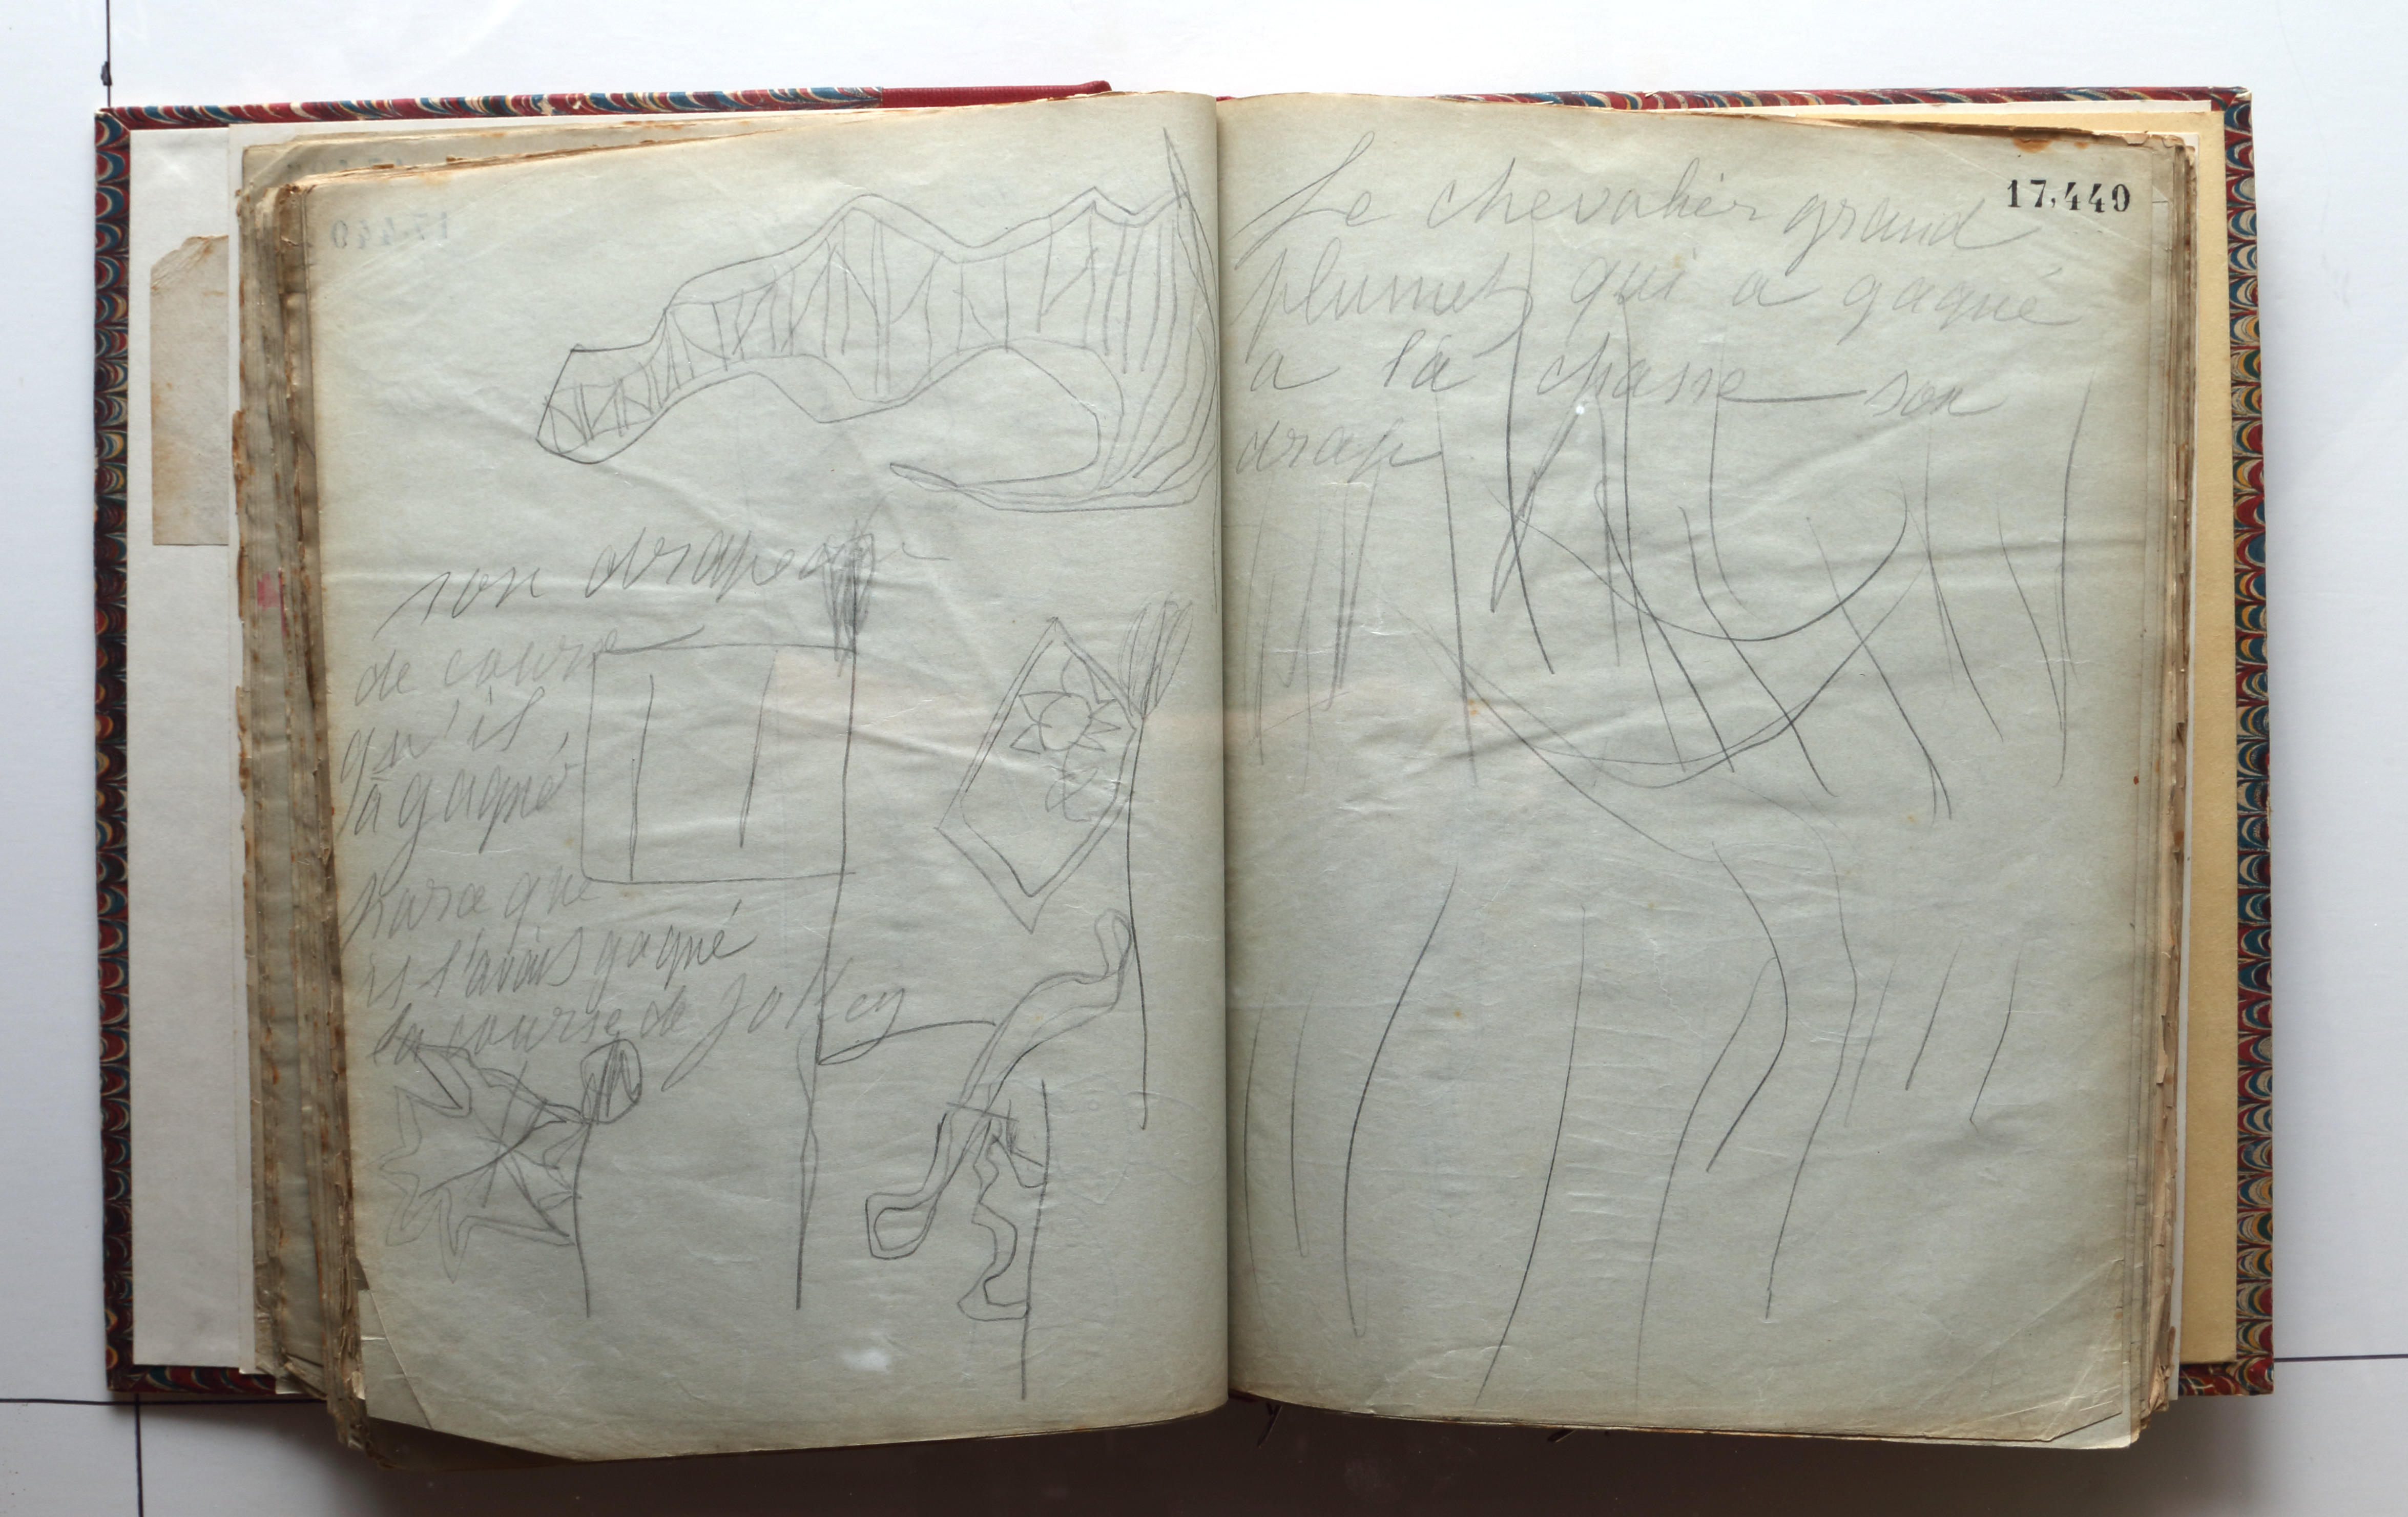 son drapeau
de course
qu'il
a gagné
parce que
il l'avais gagné
la course de Jokey
17.440
Le chevalier grand
plumet qui a gagné
a la chasse son
drap